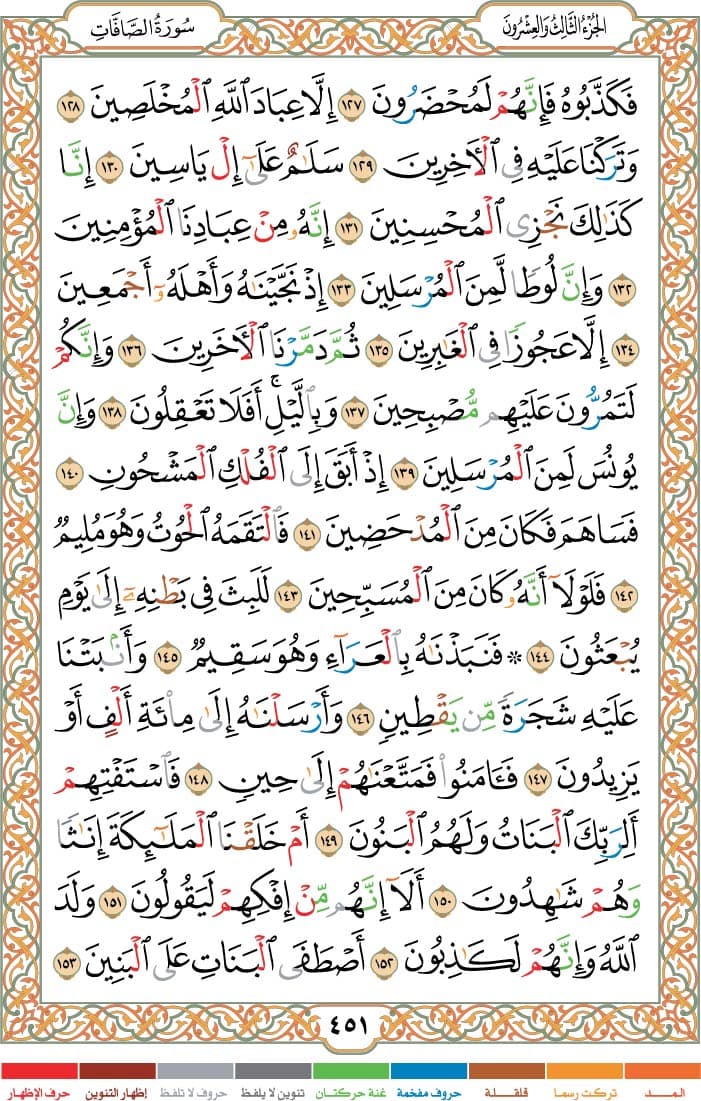 الجُزْءُ الثَّالِثُ وَالعِشْرُونَ
سُورَةُ الصَّافَاتِ
فَكَذَّبُوهُ فَإِنَّهُمْ لَمُحْضَرُونَ ١٢٧ إِلَّا عِبَادَ ٱللَّهِ ٱلْمُخْلَصِينَ ١٢٨
وَتَرَكْنَا عَلَيْهِ فِي ٱلْأَخِرِينَ ١٢٩ سَلَٰمٌ عَلَىٰٓ إِلْ يَاسِينَ ١٣٠ إِنَّا
كَذَٰلِكَ نَجْزِي ٱلْمُحْسِنِينَ ١٣١ إِنَّهُۥ مِنْ عِبَادِنَا ٱلْمُؤْمِنِينَ
١٣٢ وَإِنَّ لُوطًا لَّمِنَ ٱلْمُرْسَلِينَ ١٣٣ إِذْ نَجَّيْنَٰهُ وَأَهْلَهُۥٓ أَجْمَعِينَ
١٣٤ إِلَّا عَجُوزًا فِي ٱلْغَٰبِرِينَ ١٣٥ ثُمَّ دَمَّرْنَا ٱلْأَخَرِينَ ١٣٦ وَإِنَّكُمْ
لَتَمُرُّونَ عَلَيْهِم مُّصْبِحِينَ ١٣٧ وَبِٱلَّيْلِ ۚ أَفَلَا تَعْقِلُونَ ١٣٨ وَإِنَّ
يُونُسَ لَمِنَ ٱلْمُرْسَلِينَ ١٣٩ إِذْ أَبَقَ إِلَى ٱلْفُلْكِ ٱلْمَشْحُونِ ١٤٠
فَسَاهَمَ فَكَانَ مِنَ ٱلْمُدْحَضِينَ ١٤١ فَٱلْتَقَمَهُ ٱلْحُوتُ وَهُوَ مُلِيمٌ
١٤٢ فَلَوْلَآ أَنَّهُۥ كَانَ مِنَ ٱلْمُسَبِّحِينَ ١٤٣ لَلَبِثَ فِي بَطْنِهِۦٓ إِلَىٰ يَوْمِ
يُبْعَثُونَ ١٤٤ * فَنَبَذْنَٰهُ بِٱلْعَرَآءِ وَهُوَ سَقِيمٌ ١٤٥ وَأَنۢبَتْنَا
عَلَيْهِ شَجَرَةً مِّن يَقْطِينٍ ١٤٦ وَأَرْسَلْنَٰهُ إِلَىٰ مِا۟ئَةِ أَلْفٍ أَوْ
يَزِيدُونَ ١٤٧ فَـَٔامَنُوا۟ فَمَتَّعْنَٰهُمْ إِلَىٰ حِينٍ ١٤٨ فَٱسْتَفْتِهِمْ
أَلِرَبِّكَ ٱلْبَنَاتُ وَلَهُمُ ٱلْبَنُونَ ١٤٩ أَمْ خَلَقْنَا ٱلْمَلَٰٓئِكَةَ إِنَٰثًا
وَهُمْ شَٰهِدُونَ ١٥٠ أَلَآ إِنَّهُم مِّنْ إِفْكِهِمْ لَيَقُولُونَ ١٥١ وَلَدَ
ٱللَّهُ وَإِنَّهُمْ لَكَٰذِبُونَ ١٥٢ أَصْطَفَى ٱلْبَنَاتِ عَلَى ٱلْبَنِينَ ١٥٣
٤٥١
المـــد
تركت رسما
قلقـلـة
حروف مفخمة
غنة حركتان
تنوين لا يلفظ
حروف لا تلفظ
إظهار التنوين
حرف الإظهار